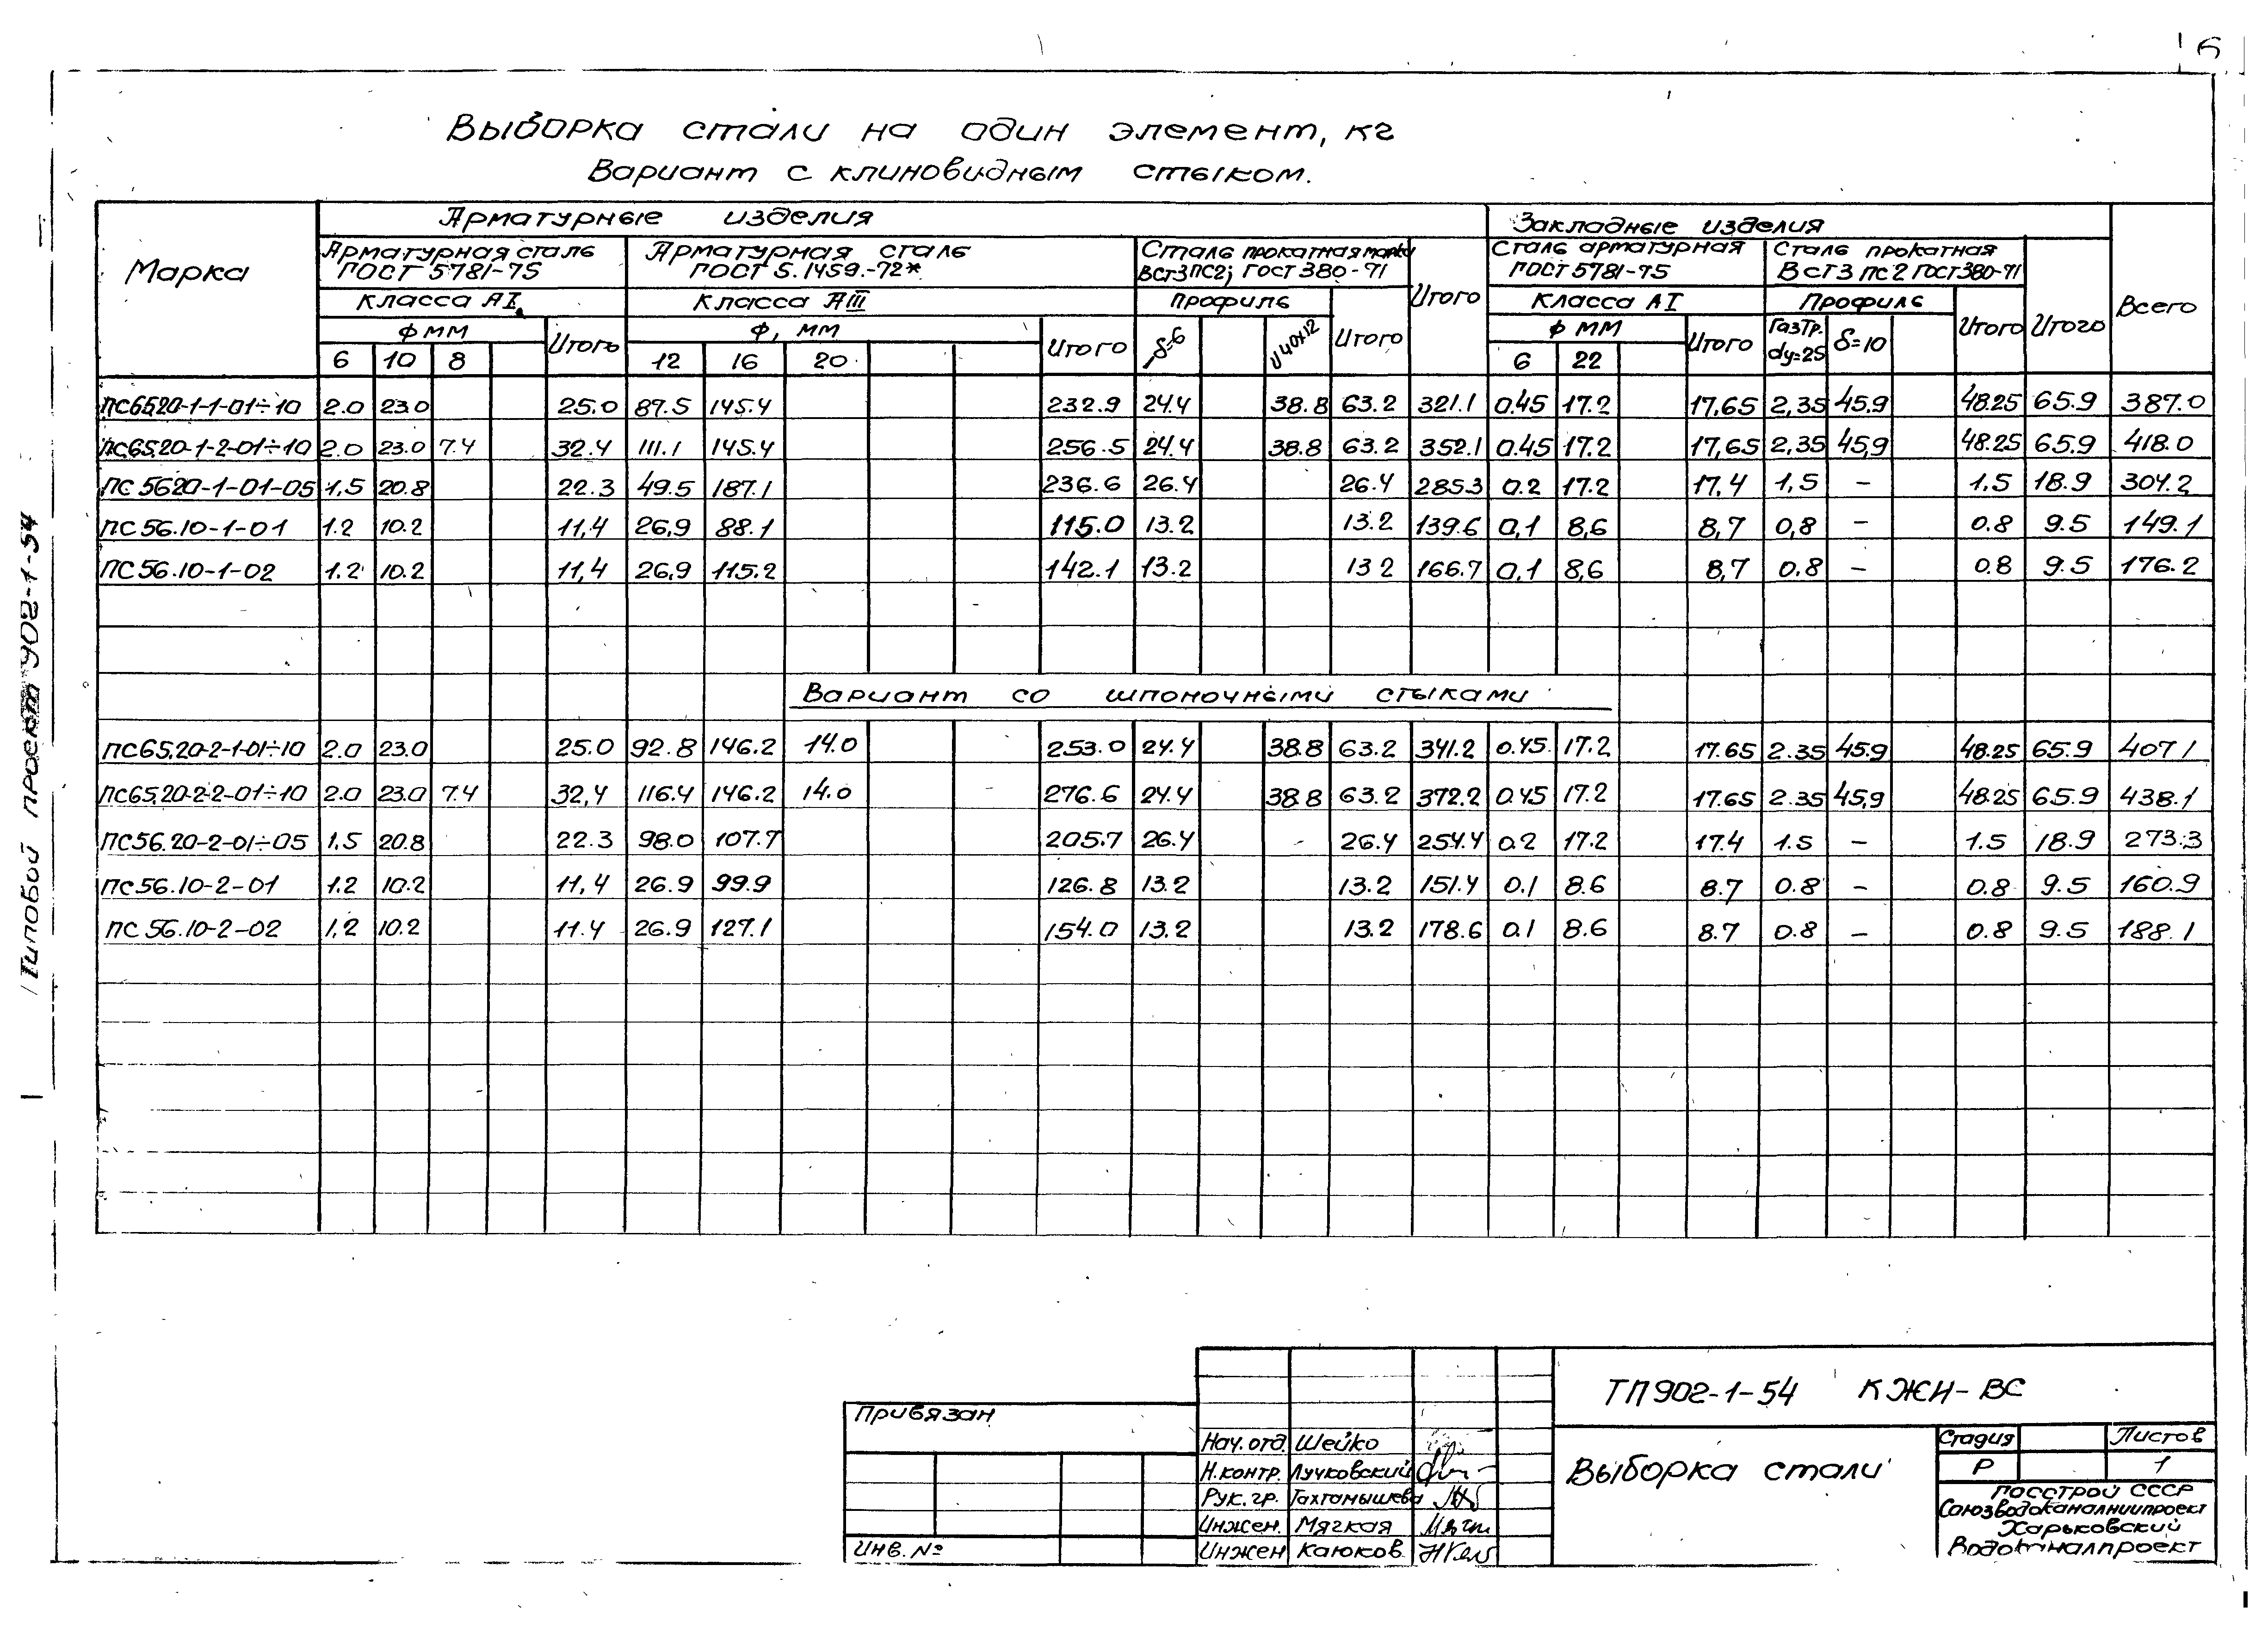 6
Выборка стали на один элемент, кг
Вариант с клиновидным стыком.
Марка
Арматурные изделия
Закладные изделия
Всего
Арматурная сталь ГОСТ 5781-75
Арматурная сталь ГОСТ 5.1459.-72*
Сталь прокатная марки ВСт3пс2; ГОСТ 380-71
Итого
Сталь арматурная ГОСТ 5781-75
Сталь прокатная ВСТ3пс2 ГОСТ 380-71
Итого
Класса АI
Класса АIII
Профиль
Итого
Класса АI
Профиль
Итого
ф мм
Итого
ф, мм
Итого
ф мм
Итого
6 10 8
12 16 20
δ=6
6 22
ГазТр. dу=25
δ=10
ПС65.20-1-1-01÷10 2.0 23.0 25.0 87.5 145.4 232.9 24.4 38.8 63.2 321.1 0.45 17.2 17,65 2,35 45.9 48.25 65.9 387.0
ПС65.20-1-2-01÷10 2.0 23.0 7.4 32.4 111.1 145.4 256.5 24.4 38.8 63.2 352.1 0.45 17.2 17,65 2,35 45,9 48.25 65.9 418.0
ПС 5620-1-01-05 1,5 20.8 22.3 49.5 187.1 236.6 26.4 26.4 285.3 0.2 17.2 17,4 1,5 – 1.5 18.9 304.2
ПС 56.10-1-01 1.2 10.2 11,4 26,9 88.1 115.0 13.2 13.2 139.6 0,1 8,6 8,7 0,8 – 0.8 9.5 149.1
ПС 56.10-1-02 1.2 10.2 11,4 26,9 115.2 142.1 13.2 13 2 166.7 0,1 8,6 8,7 0.8 – 0.8 9.5 176.2
Вариант со шпоночными стыками
ПС65.20-2-1-01÷10 2.0 23.0 25.0 92.8 146.2 14.0 253.0 24.4 38.8 63.2 341.2 0.45 17.2 17.65 2.35 45.9 48.25 65.9 407.1
ПС65.20-2-2-01÷10 2.0 23.0 7.4 32,4 116.4 146.2 14.0 276.6 24.4 38.8 63.2 372.2 0.45 17.2 17.65 2.35 45,9 48.25 65.9 438.1
ПС56.20-2-01÷05 1.5 20.8 22.3 98.0 107.7 205.7 26.4 - 26.4 254.4 0.2 17.2 17.4 1.5 – 1.5 18.9 273.3
ПС56.10-2-01 1.2 10.2 11,4 26.9 99.9 126.8 13.2 13.2 151.4 0.1 8.6 8.7 0.8 – 0.8 9.5 160.9
ПС 56.10-2-02 1,2 10.2 11.4 26.9 127.1 154.0 13.2 13.2 178.6 0.1 8.6 8.7 0.8 – 0.8 9.5 188.1
Типовой проект 902-1-54
Привязан
Инв. №
Нач. отд. Шейко
Н. контр. Лучковский
Рук. гр. Тахтамышева
Инжен. Мягкая
Инжен Каюков
ТП902-1-54 КЖИ-ВС
Выборка стали
Стадия Листов
Р 1
Госстрой СССР
Союзводоканалниипроект
Харьковский
Водоканалпроект